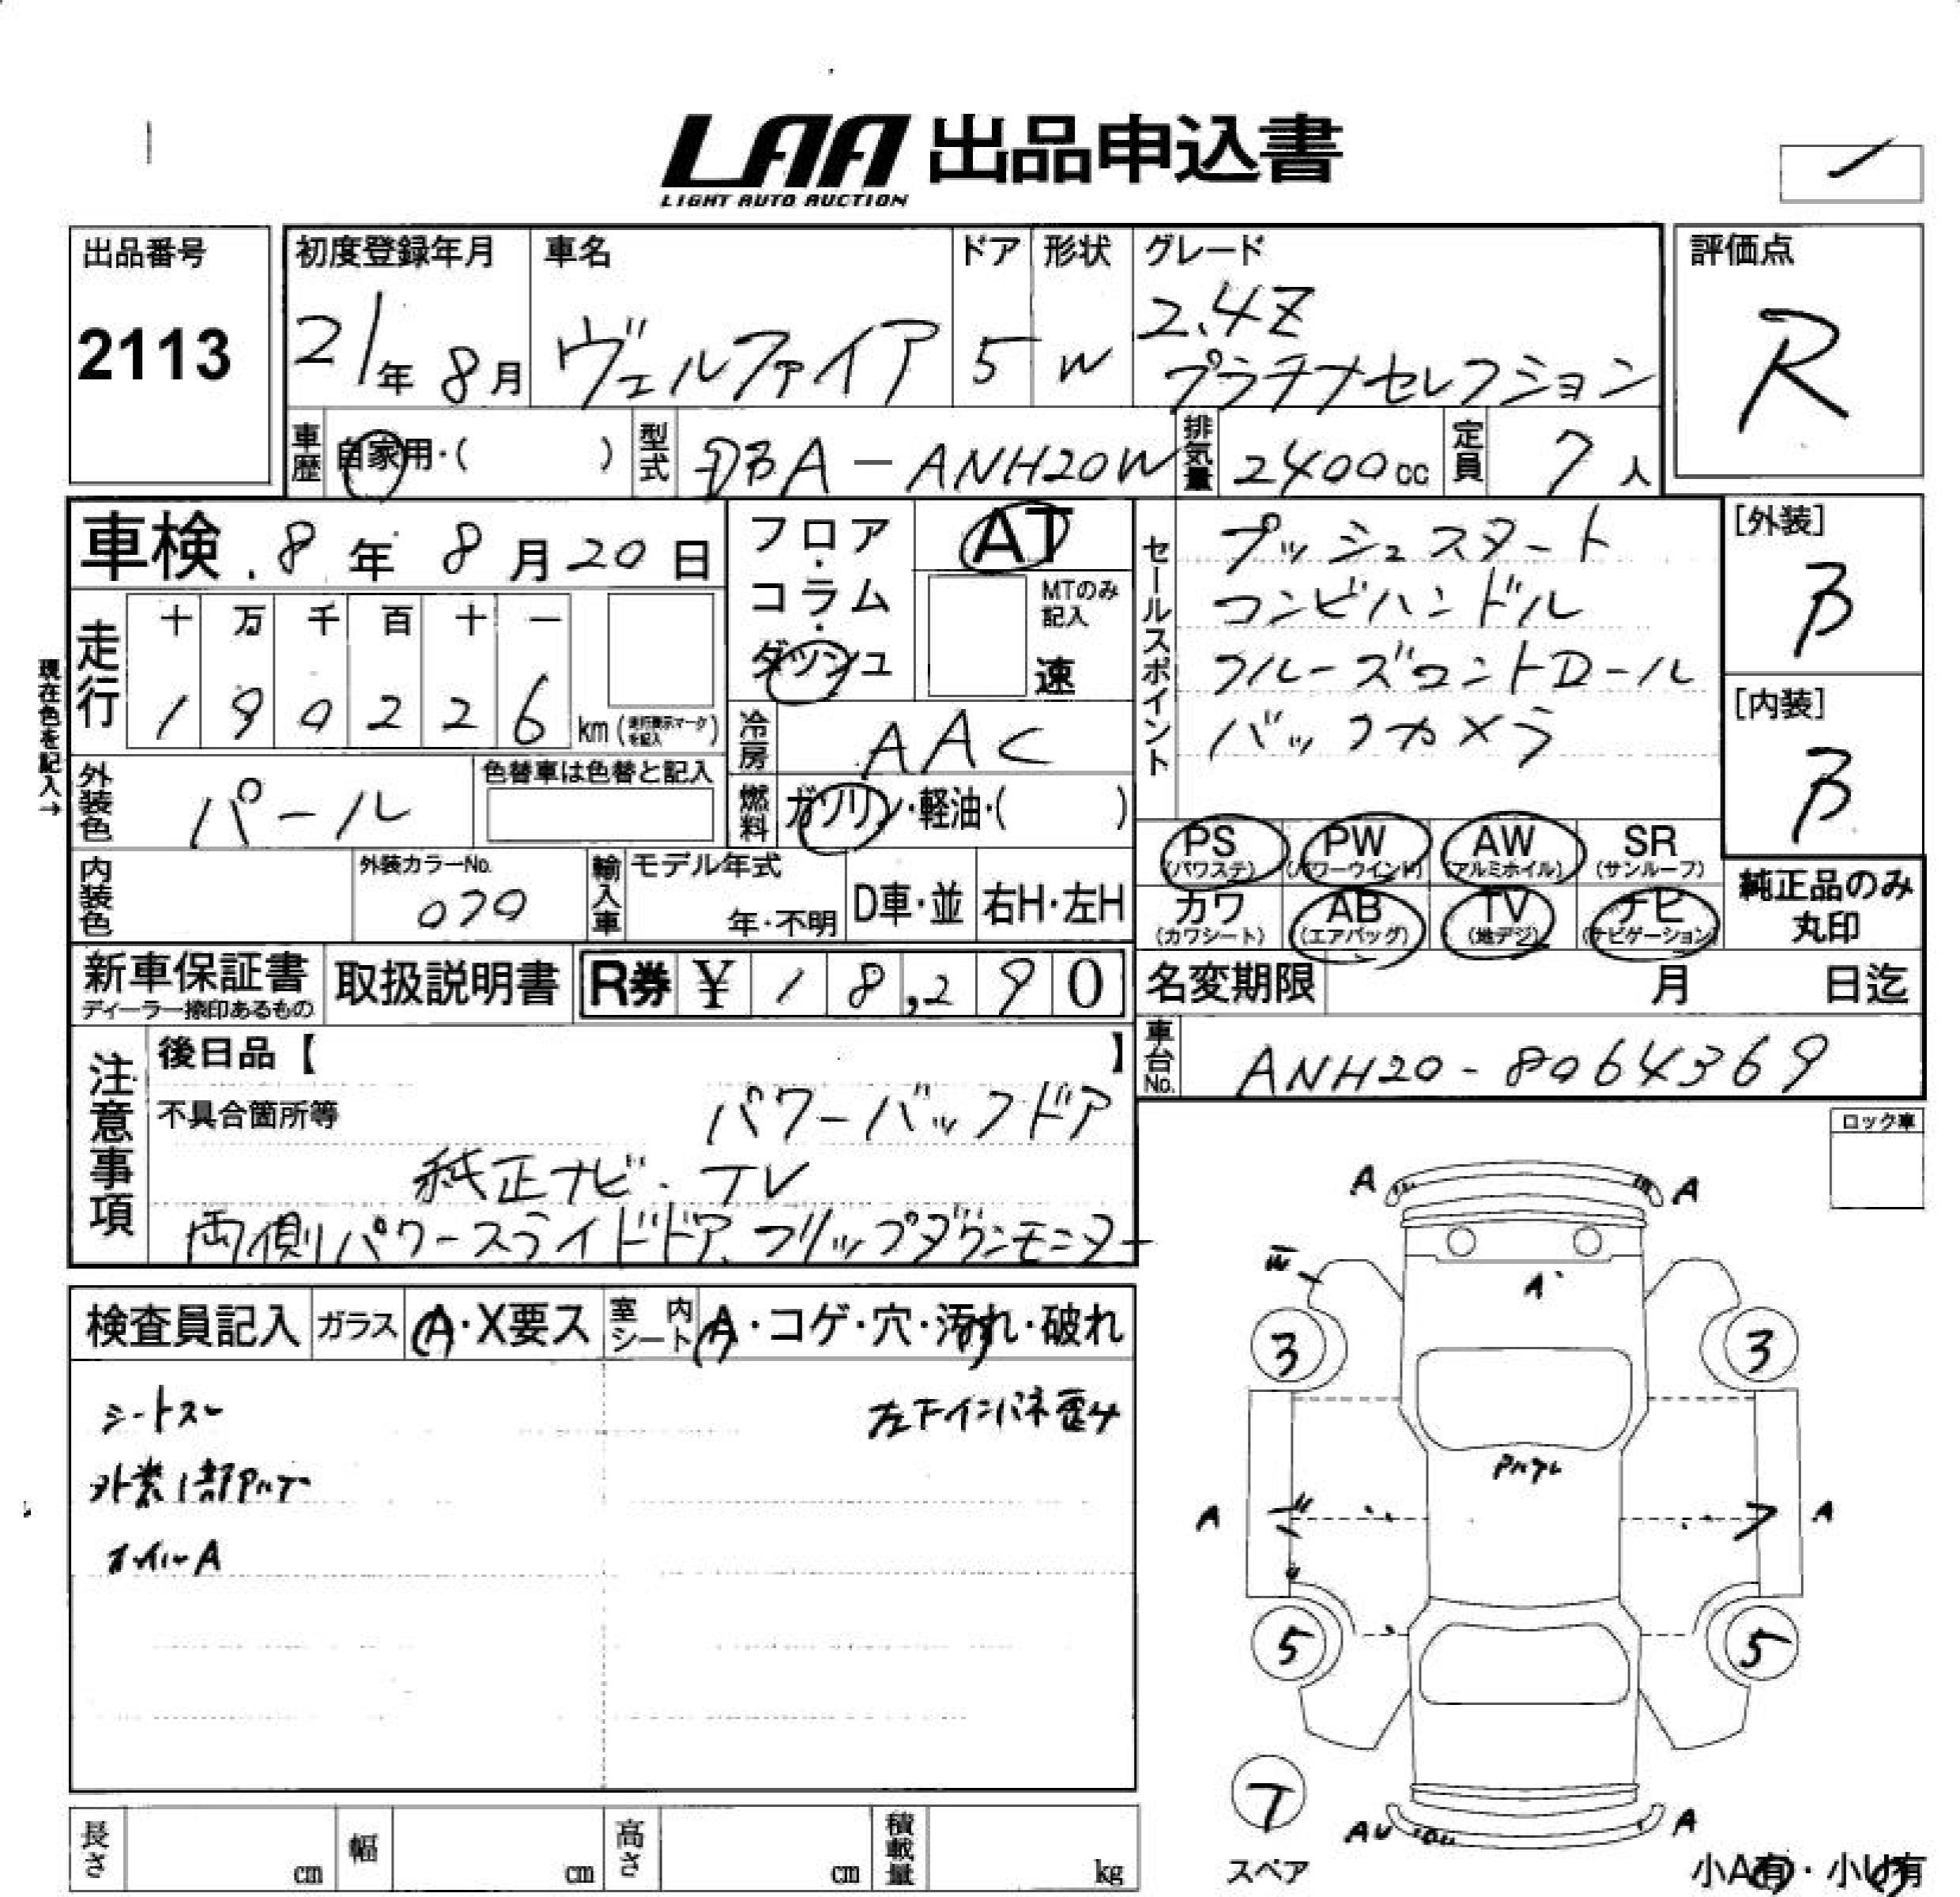 LAA 出品申込書
LIGHT AUTO AUCTION
出品番号
2113
初度登録年月
21年 8月
車名
ヴェルファイア
ドア
5
形状
W
グレード
2.4Z
プラチナセレクション
評価点
R
車歴 自家用・( )
型式 DBA-ANH20W
排気量 2400cc
定員 7人
車検 8年 8月 20日
現在色を記入→
走行
十 万 千 百 十 一
1 9 0 2 2 6 km (走行表示マークを記入)
フロア・コラム・ダッシュ
AT
MTのみ記入
速
冷房 AAC
燃料 ガソリン・軽油・( )
外装色 パール
色替車は色替と記入
内装色
外装カラーNo.
070
輸入車
モデル年式
年・不明
D車・並
右H・左H
セールスポイント
プッシュスタート
コンビハンドル
クルーズコントロール
バックカメラ
[外装]
B
[内装]
B
PS (パワステ)
PW (パワーウインド)
AW (アルミホイル)
SR (サンルーフ)
カワ (カワシート)
AB (エアバッグ)
TV (地デジ)
ナビ (ナビゲーション)
純正品のみ
丸印
新車保証書
ディーラー捺印あるもの
取扱説明書
R券 ¥ 18,290
名変期限 月 日迄
車台No. ANH20-8064369
注意事項
後日品【 】
不具合箇所等
パワーバックドア
純正ナビ・TV
両側パワースライドドア、フリップダウンモニター
ロック車
検査員記入
ガラス A・X要ス
室内シート A・コゲ・穴・汚れ・破れ
シートスレ
左下インパネ歪み
外装1部
ホイルA
A A
W
A
3 3
A A
5 5
7
スペア
AU A
小A有・小U有
長さ cm
幅 cm
高さ cm
積載量 kg